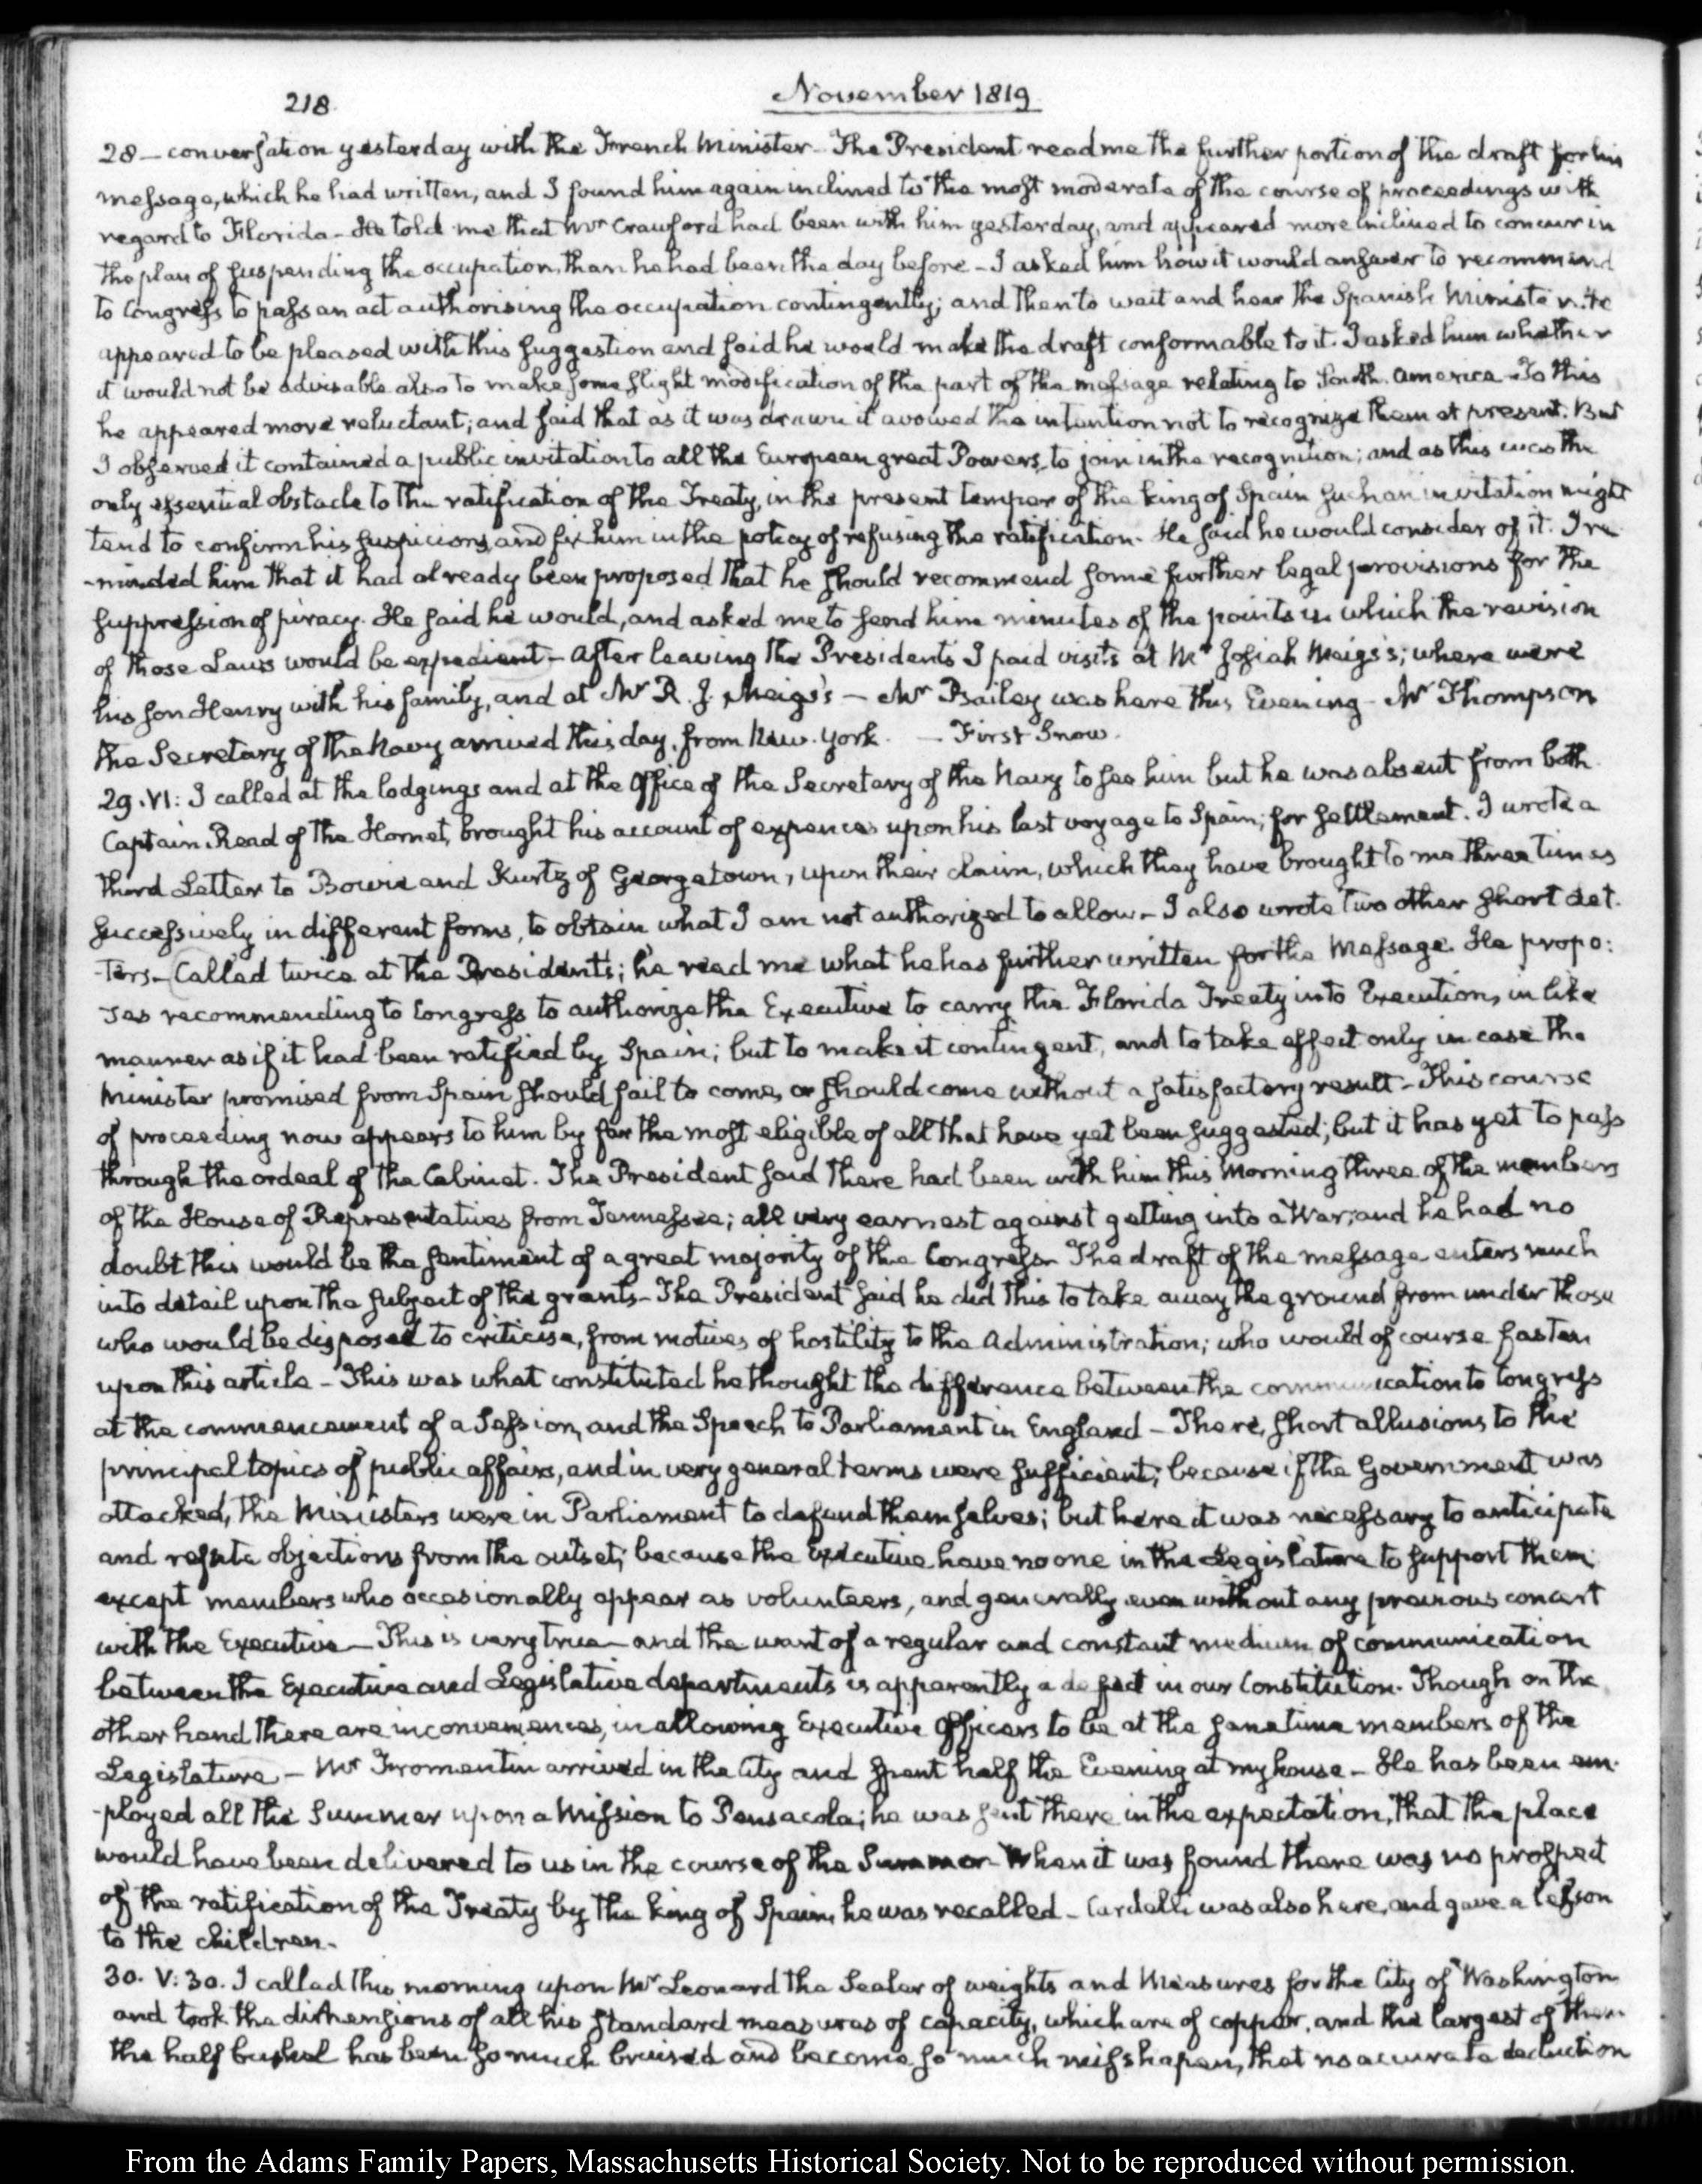 218
November 1819
28 — conversation yesterday with the French Minister — The President read me the further portion of the draft for his
message, which he had written, and I found him again inclined to the most moderate of the course of proceedings with
regard to Florida — He told me that Mr Crawford had been with him yesterday, and appeared more inclined to concur in
the plan of suspending the occupation, than he had been the day before — I asked him how it would answer to recommend
to Congress to pass an act authorising the occupation contingently; and then to wait and hear the Spanish Minister. He
appeared to be pleased with this suggestion and said he would make the draft conformable to it. I asked him whether
it would not be adviseable also to make some slight modification of the part of the message relating to South America — To this
he appeared more reluctant; and said that as it was drawn it avowed the intention not to recognize them at present. But
I observed it contained a public invitation to all the European great Powers, to join in the recognition; and as this was the
only essential obstacle to the ratification of the Treaty, in the present temper of the king of Spain such an invitation might
tend to confirm his suspicions, and fix him in the policy of refusing the ratification. He said he would consider of it. I re
-minded him that it had already been proposed that he should recommend some further legal provisions for the
suppression of piracy. He said he would, and asked me to send him minutes of the points in which the revision
of those Laws would be expedient — After leaving the President's I paid visits at Mr Josiah Meigs's; where were
his son Henry with his family, and at Mr R. J. Meigs's — Mr Bailey was here this Evening — Mr Thompson
the Secretary of the Navy arrived this day, from New-York. — First Snow.
29. VI: I called at the lodgings and at the Office of the Secretary of the Navy to see him but he was absent from both.
Captain Read of the Hornet, brought his account of expences upon his last voyage to Spain, for settlement. I wrote a
third Letter to Bowie and Kurtz of Georgetown, upon their claim, which they have brought to me three times
successively in different forms, to obtain what I am not authorized to allow — I also wrote two other short Let-
-ters — Called twice at the President's; he read me what he has further written for the Message. He propo:
ses recommending to Congress to authorize the Executive to carry the Florida Treaty into Execution, in like
manner as if it had been ratified by Spain; but to make it contingent, and to take effect only in case the
Minister promised from Spain should fail to come, or should come without a satisfactory result — This course
of proceeding now appears to him by far the most eligible of all that have yet been suggested; but it has yet to pass
through the ordeal of the Cabinet. The President said there had been with him this Morning three of the members
of the House of Representatives from Tennessee; all very earnest against getting into a War; and he had no
doubt this would be the sentiment of a great majority of the Congress — The draft of the message enters much
into detail upon the subject of the grants — The President said he did this to take away the ground from under those
who would be disposed to criticise, from motives of hostility to the Administration; who would of course fasten
upon this article — This was what constituted he thought the difference between the communication to Congress
at the commencement of a Session, and the Speech to Parliament in England — There, short allusions to the
principal topics of public affairs, and in very general terms were sufficient; because if the Government was
attacked, the Ministers were in Parliament to defend themselves; but here it was necessary to anticipate
and refute objections from the outset; because the Executive have no one in the Legislature to support them;
except members who occasionally appear as volunteers, and generally even without any previous concert
with the Executive — This is very true — and the want of a regular and constant medium of communication
between the Executive and Legislative departments is apparently a defect in our Constitution. Though on the
other hand there are inconveniences, in allowing Executive Officers to be at the same time members of the
Legislature — Mr Fromentin arrived in the City and spent half the Evening at my house — He has been em-
-ployed all the Summer upon a Mission to Pensacola; he was sent there in the expectation, that the place
would have been delivered to us in the course of the Summer — When it was found there was no prospect
of the ratification of the Treaty by the king of Spain, he was recalled — Cardelli was also here, and gave a lesson
to the children.
30. V:30. I called this morning upon Mr Leonard the Sealer of weights and Measures for the City of Washington
and took the dimensions of all his standard measures of capacity, which are of copper, and the largest of them
the half bushel has been so much bruised and become so much misshapen, that no accurate deduction
From the Adams Family Papers, Massachusetts Historical Society. Not to be reproduced without permission.